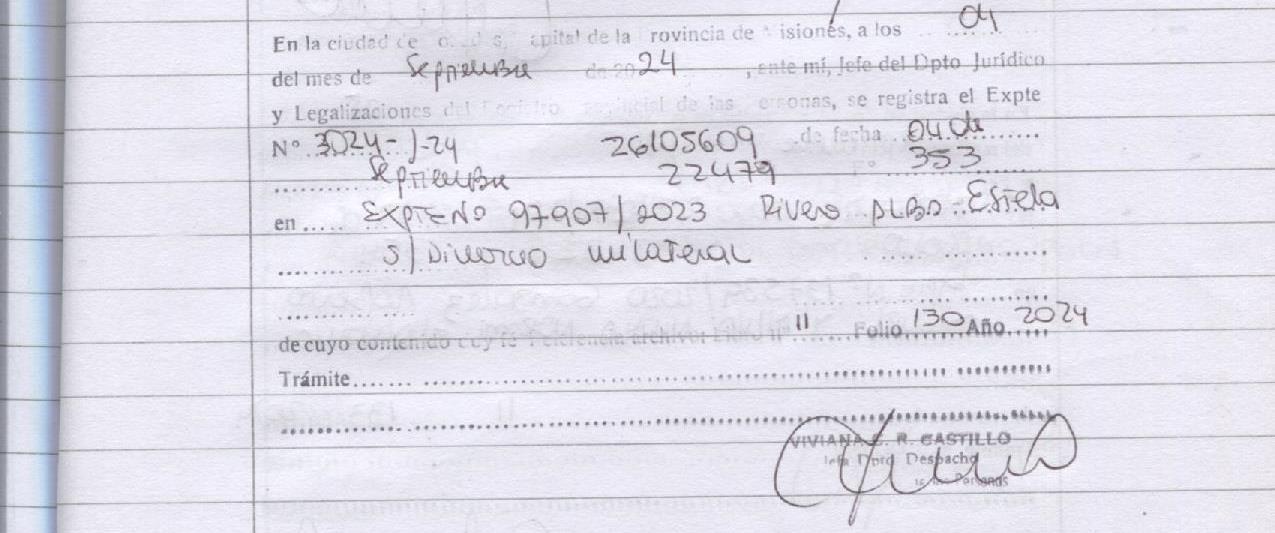 En la ciudad de capital de la Provincia de Misiones, a los 04
del mes de Septiembre de 2024, ante mí, Jefe del Dpto Jurídico
y Legalizaciones del Registro Provincial de las Personas, se registra el Expte
N° 3024-J-24 26105609 de fecha 04 de
Septiembre 22479 F° 353
en EXPTE N° 97907/2023 Rivero ALBA Estela
S/ Divorcio unilateral
de cuyo contenido archivo: Libro N° 11 Folio 130 Año 2024
Trámite
VIVIANA R. CASTILLO
Jefa Dpto. Despacho
Personas